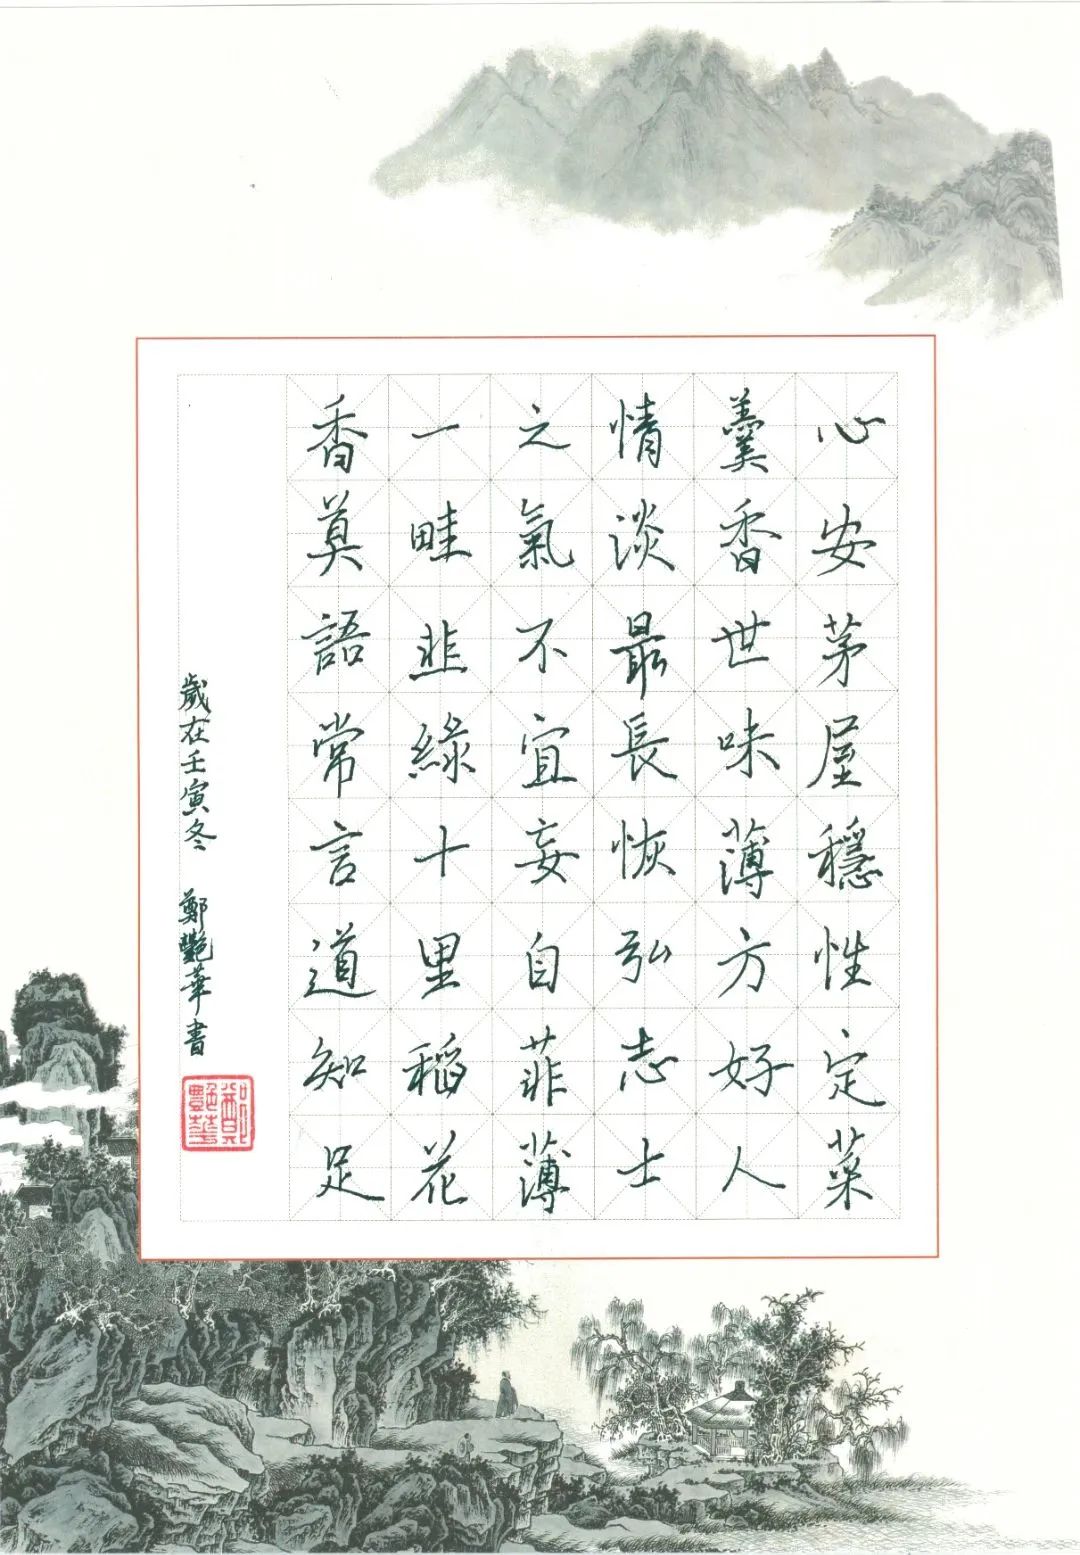 心安茅屋穩性定菜
羹香世味薄方好人
情淡最長恢弘志士
之氣不宜妄自菲薄
一畦韭綠十里稻花
香莫語常言道知足
歲在壬寅冬 鄭艷華書
鄭艷華